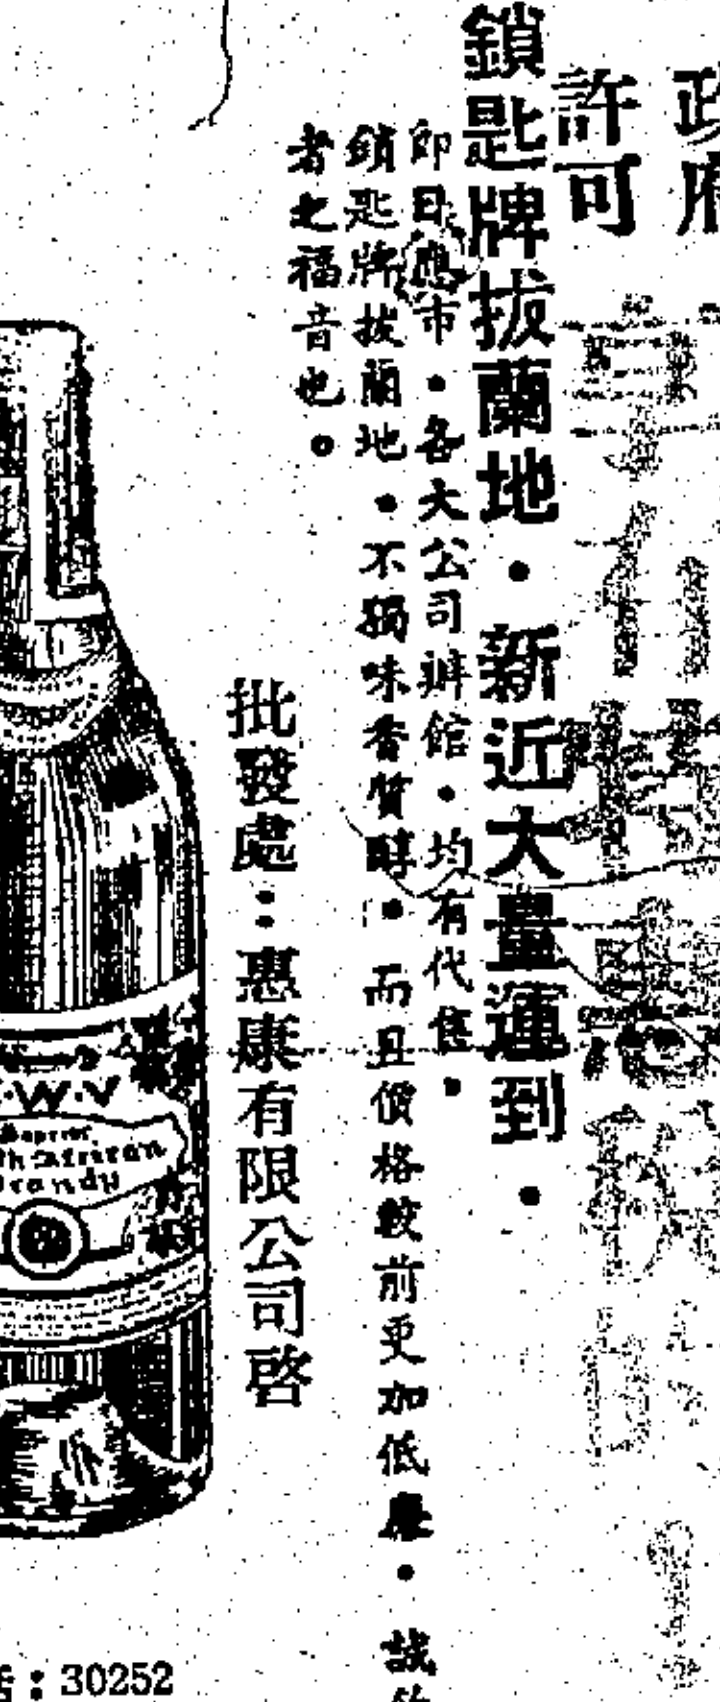 政府
許可
鎖匙牌拔蘭地・新近大量運到・
即日應市・各大公司辦館・均有代售・
鎖匙牌拔蘭地・不獨味香質醇・而且價格較前更加低廉・誠飲
者之福音也。
批發處：惠康有限公司啓
W·V
African
Brandy
：30252